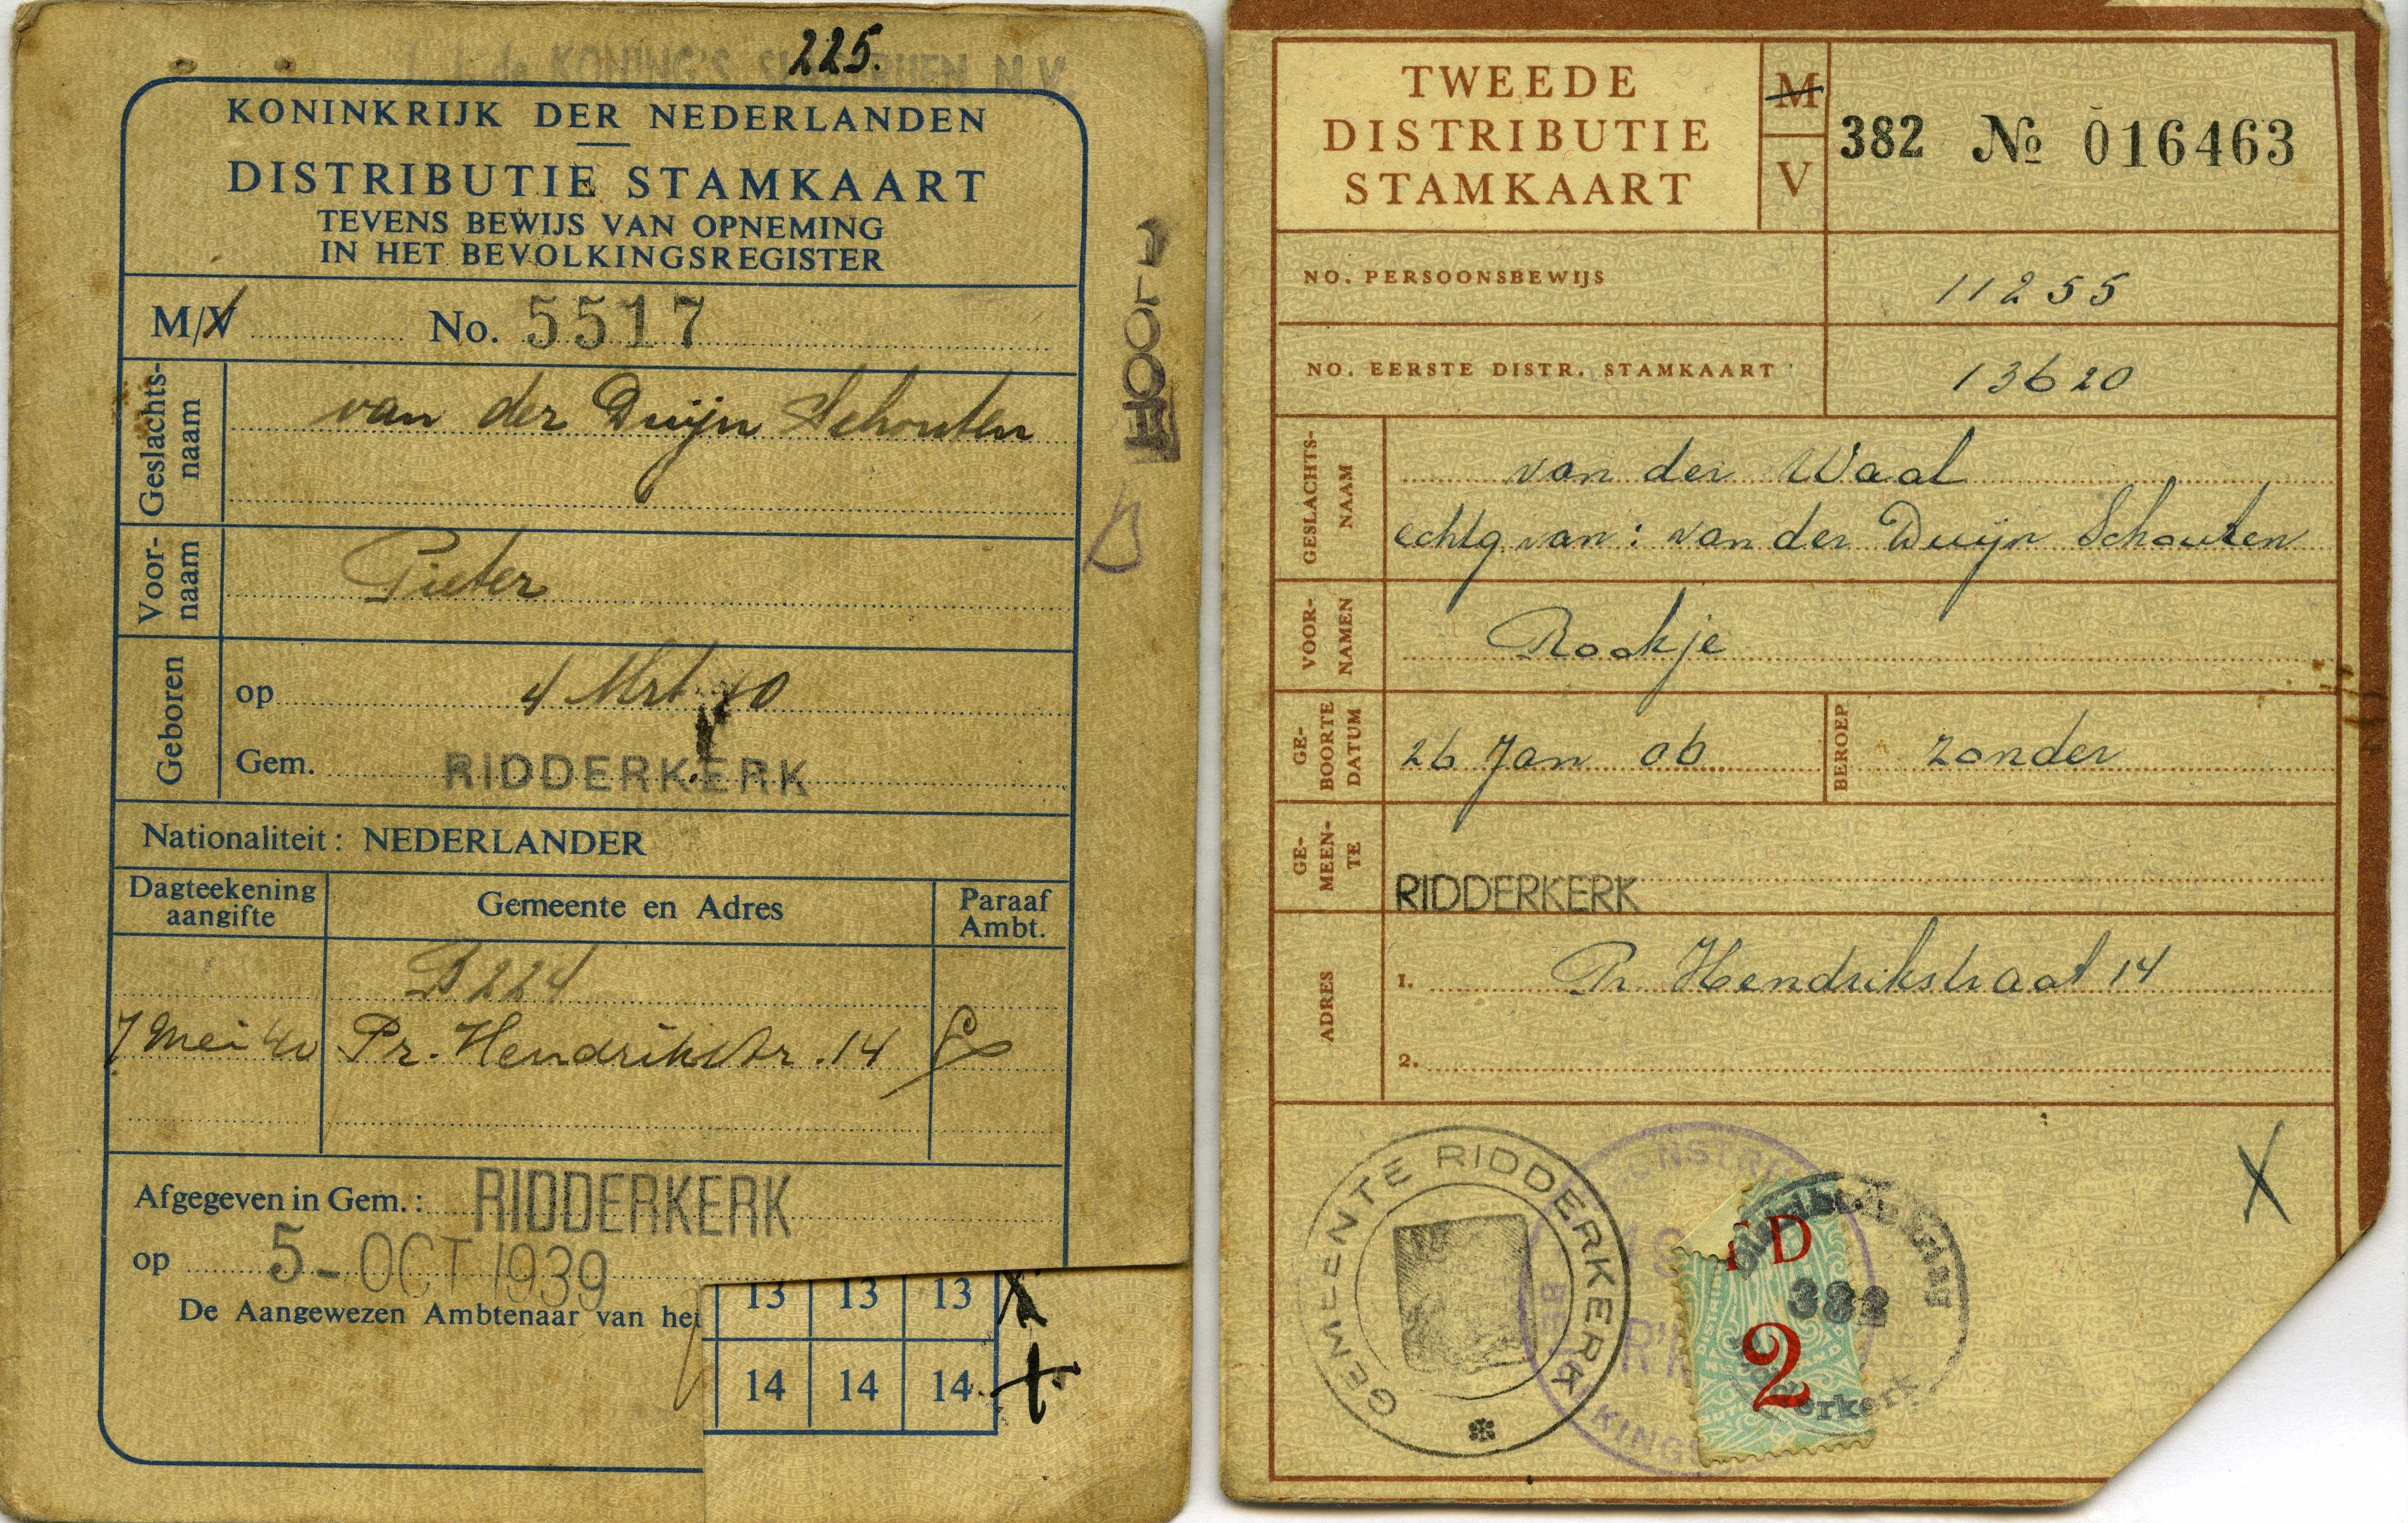 225.
KONING'S
N.V.
KONINKRIJK DER NEDERLANDEN
DISTRIBUTIE STAMKAART
TEVENS BEWIJS VAN OPNEMING
IN HET BEVOLKINGSREGISTER
M/V No. 5517
Geslachts-
naam
van der Duijn Schouten
Voor-
naam
Pieter
Geboren
op 4 Mrt 40
Gem. RIDDERKERK
Nationaliteit: NEDERLANDER
Dagteekening
aangifte
Gemeente en Adres
Paraaf
Ambt.
B 224
7 Mei 40 Pr. Hendrikstr. 14
Afgegeven in Gem.: RIDDERKERK
op 5-OCT 1939
De Aangewezen Ambtenaar van het
13 13 13 X
14 14 14
HOOFD
B
TWEEDE
DISTRIBUTIE
STAMKAART
M
V
382 № 016463
NO. PERSOONSBEWIJS 11255
NO. EERSTE DISTR. STAMKAART 13620
GESLACHTS-
NAAM
van der Waal
echtg van: van der Duijn Schouten
VOOR-
NAMEN
Rookje
GE-
BOORTE
DATUM
26 Jan 06
BEROEP
zonder
GE-
MEEN-
TE
RIDDERKERK
ADRES
1. Pr. Hendrikstraat 14
2.
X
GEMEENTE RIDDERKERK
382
2